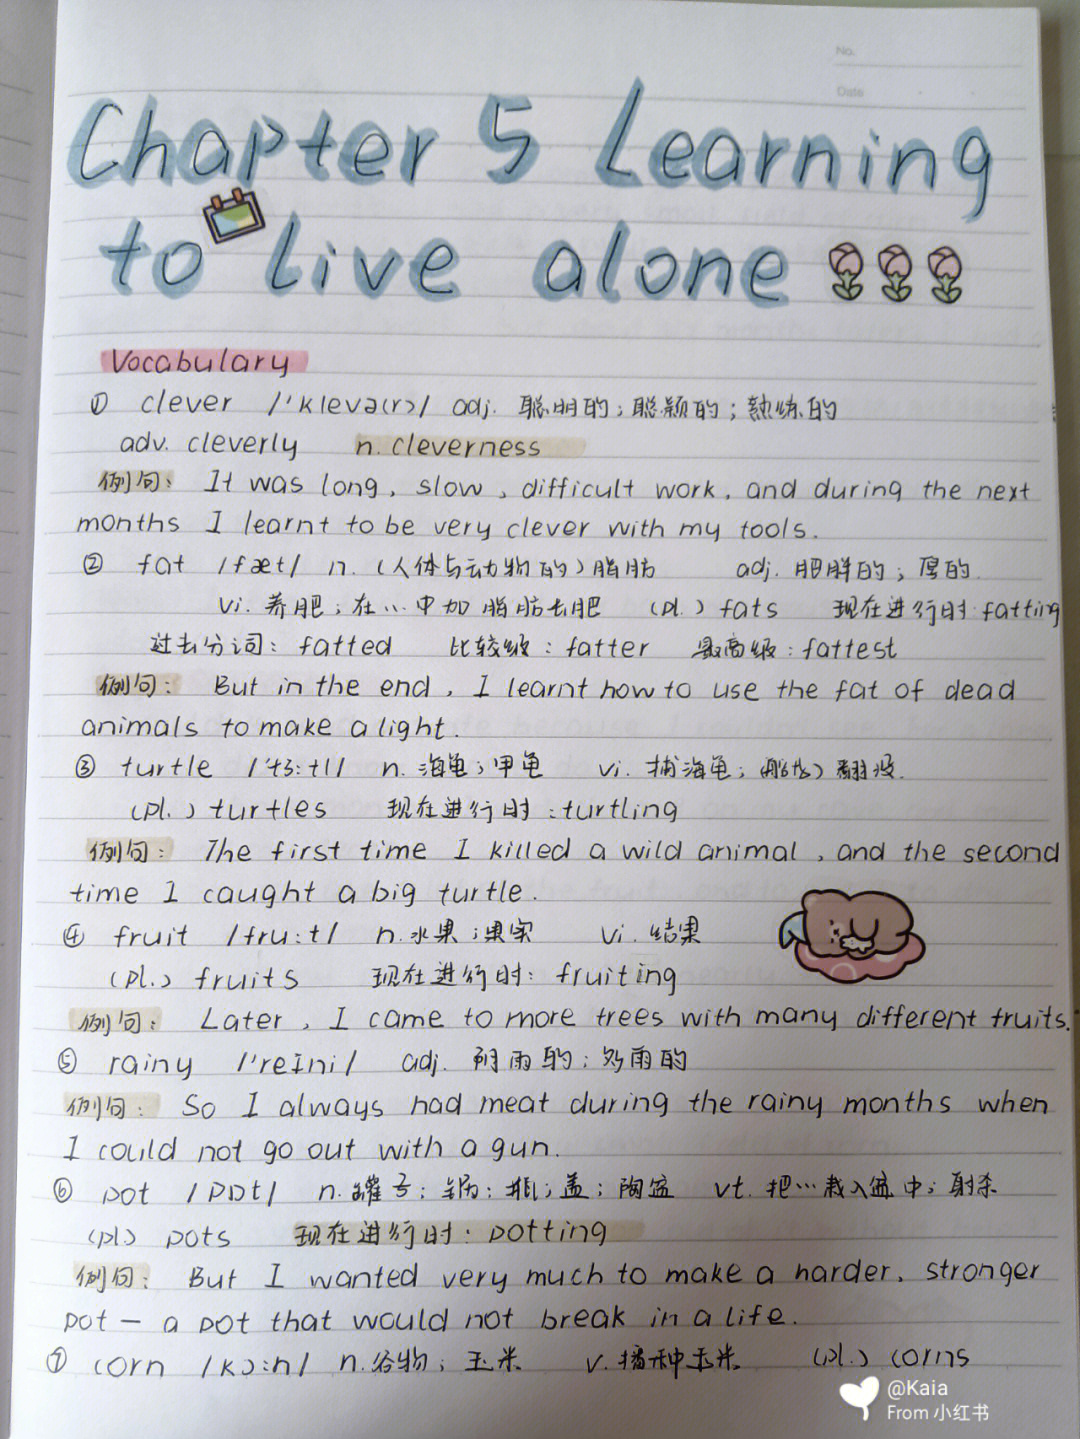 No.
Date
Chapter 5 Learning
to live alone
Vocabulary
① clever /'klevə(r)/ adj. 聪明的；聪颖的；熟练的
adv. cleverly n. cleverness
例句： It was long, slow, difficult work, and during the next
months I learnt to be very clever with my tools.
② fat /fæt/ n. (人体与动物的)脂肪 adj. 肥胖的；厚的.
vi. 养肥；在…中加脂肪 (pl.) fats 现在进行时: fatting
过去分词： fatted 比较级： fatter 最高级: fattest
例句： But in the end, I learnt how to use the fat of dead
animals to make a light.
③ turtle /'tɜ:tl/ n. 海龟；甲龟 vi. 捕海龟； 翻没.
(pl.) turtles 现在进行时: turtling
例句： The first time I killed a wild animal, and the second
time I caught a big turtle.
④ fruit /fru:t/ n. 水果；果实 vi. 结果
(pl.) fruits 现在进行时: fruiting
例句： Later, I came to more trees with many different fruits.
⑤ rainy /'reɪni/ adj. 阴雨的；多雨的
例句： So I always had meat during the rainy months when
I could not go out with a gun.
⑥ pot /pɒt/ n. 锅； 盖；陶盆 vt. 把…栽入盆中；射杀
(pl) pots 现在进行时: potting
例句： But I wanted very much to make a harder, stronger
pot — a pot that would not break in a life.
⑦ corn /kɔ:n/ n. 谷物；玉米 v. 播种玉米 (pl.) corns
@Kaia
From 小红书